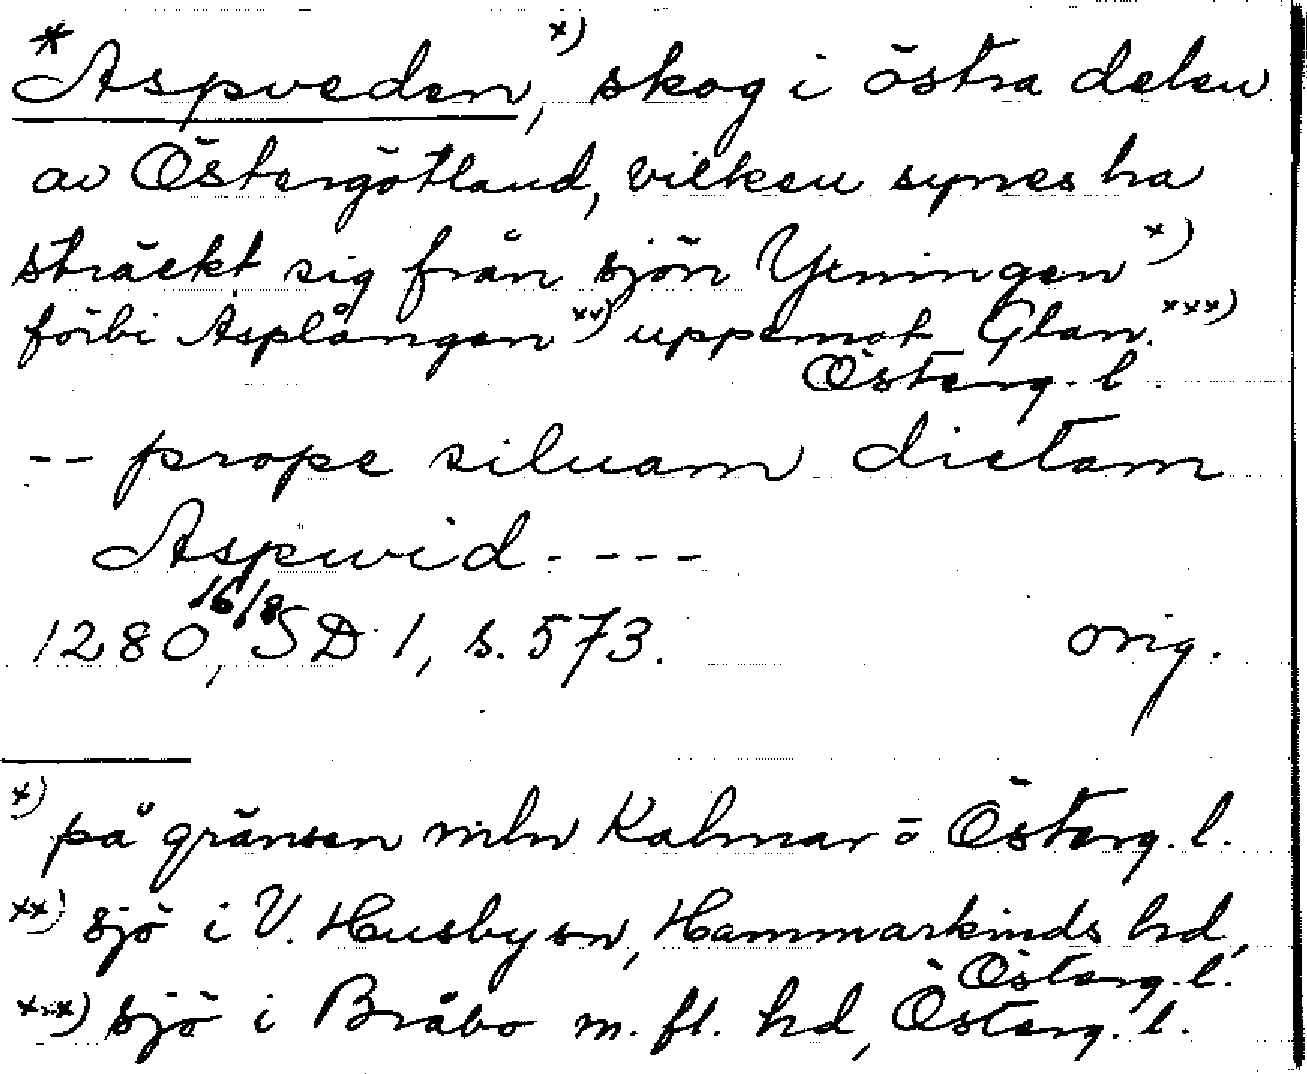 *Aspveden,x) skog i östra delen
av Östergötland, vilken synes ha
sträckt sig från sjön Yxningen x)
förbi Asplången xx) uppemot Glan. xxx)
Österg. l.
-- prope siluam dictam
Aspwid ----
1280 16/8, SD 1, s. 573. orig.
x) på gränsen mln Kalmar o Österg. l.
xx) sjö i V. Husby sn, Hammarkinds hd,
Österg. l.
xxx) sjö i Bråbo m. fl. hd, Österg. l.